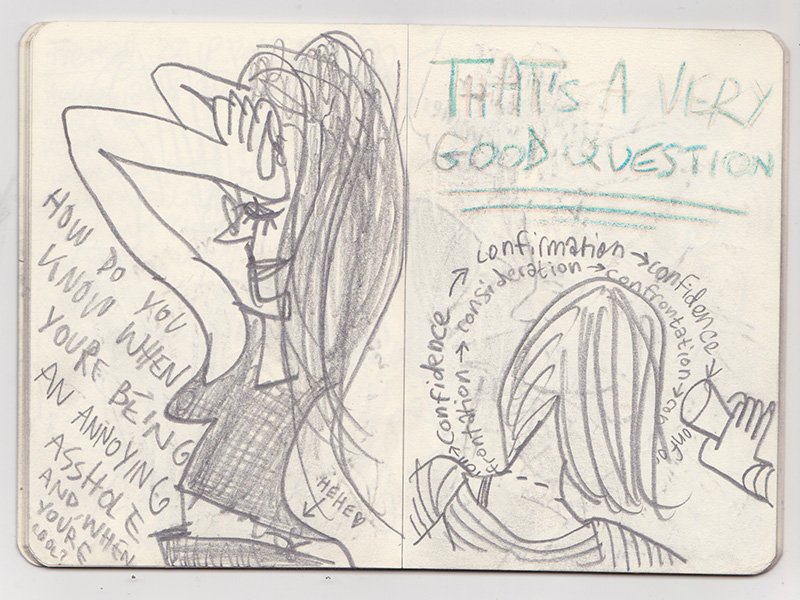 HOW DO YOU
KNOW WHEN
YOU'RE BEING
AN ANNOYING
ASSHOLE
AND WHEN
YOU'RE
COOL?
HEHE♡
THAT'S A VERY
GOOD QUESTION
confidence → confirmation → confidence →
frontation → consideration → confrontation →